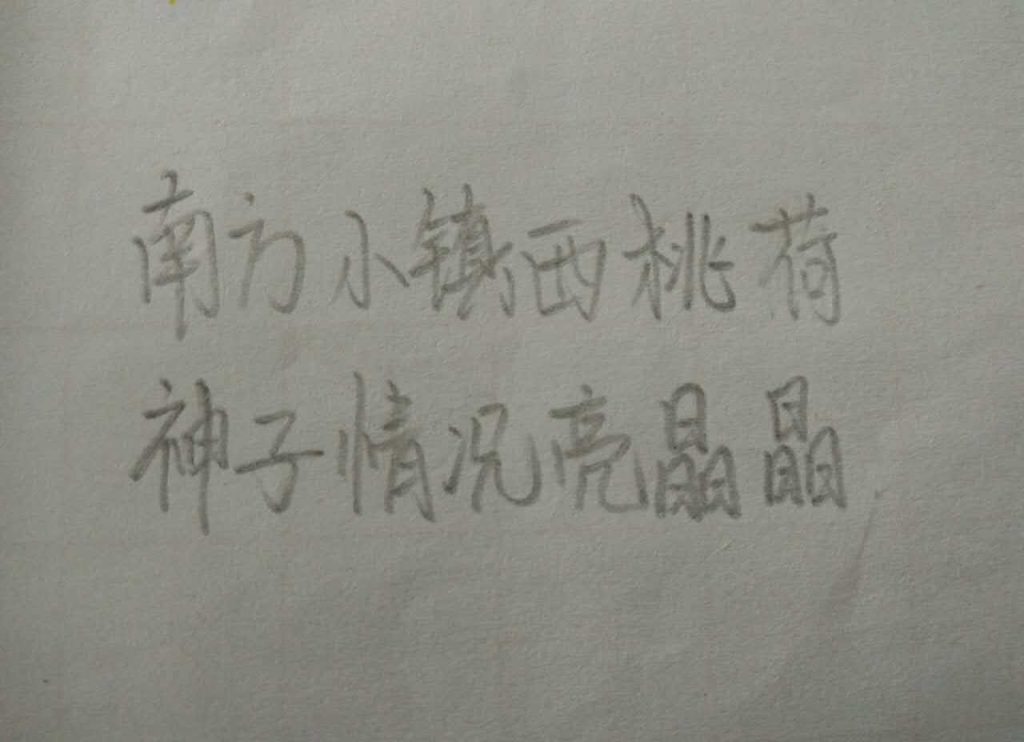 南方小镇西桃荷
神子情况亮晶晶